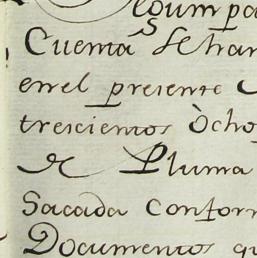 Cuenta Se han
en el presente
trescientos ocho
de Pluma
Sacada Confor
Documentos qu